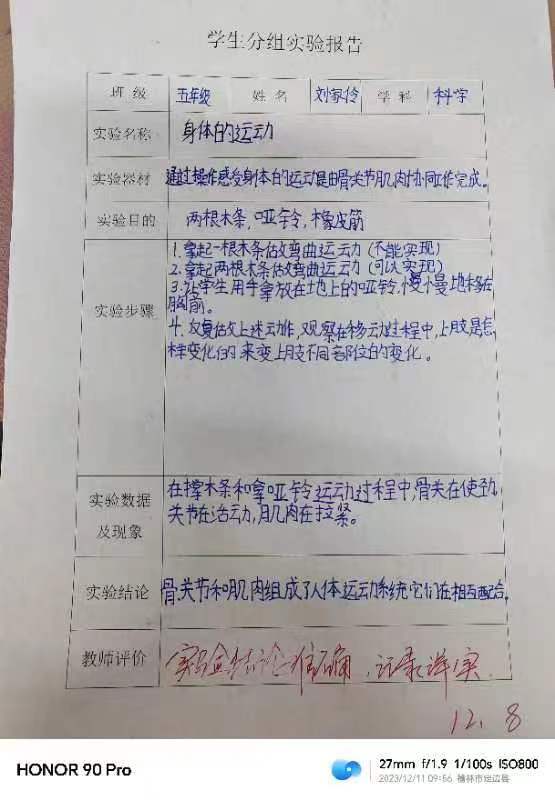 学生分组实验报告
班级 五年级 姓名 刘家伶 学科 科学
实验名称 身体的运动
实验器材 通过操作感受身体的运动是由骨关节肌肉协同工作完成。
实验目的 两根木条,哑铃,橡皮筋
实验步骤
1.拿起一根木条做弯曲运动(不能实现)
2.拿起两根木条做弯曲运动(可以实现)
3.让学生用手拿放在地上的哑铃,慢慢地移在
胸前。
4.反复做上述动作,观察在移动过程中,上肢是怎
样变化的来变上肢不同部位的变化。
实验数据
及现象
在撑木条和拿哑铃运动过程中,骨关在使劲,
关节在活动,肌肉在拉紧。
实验结论 骨关节和肌肉组成了人体运动系统它们在相互配合。
教师评价 实验结论准确,记录详实.
12.8
HONOR 90 Pro
27mm f/1.9 1/100s ISO800
2023/12/11 09:56 榆林市定边县